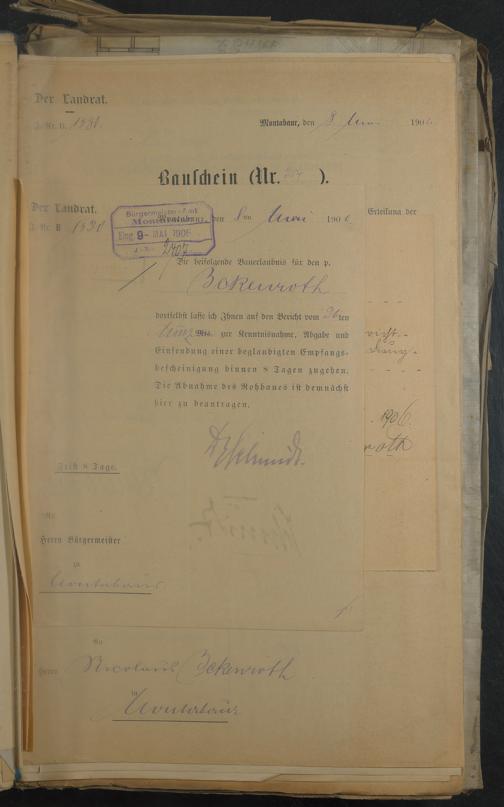 Der Landrat.
J.-Nr. II. 1930.
Montabaur, den 8. Mai 1906.
Bauschein (Nr. ).
Der Landrat.
J.-Nr. II 1930
Montabaur, den 8ten Mai 1906.
Erteilung der
Bürgermeister-Amt
Eing. 9- MAI 1906
J.-No. 2707
Die beifolgende Bauerlaubnis für den p.
Bekenroth
dortselbst lasse ich Ihnen auf den Bericht vom 26ten
Mts. zur Kenntnisnahme, Abgabe und
Einsendung einer beglaubigten Empfangs-
bescheinigung binnen 8 Tagen zugehen.
Die Abnahme des Rohbaues ist demnächst
hier zu beantragen.
1906.
Frist 8 Tage.
An
Herrn Bürgermeister
zu
Montabaur
An
Herrn Nicolaus Bekenroth
in
Montabaur